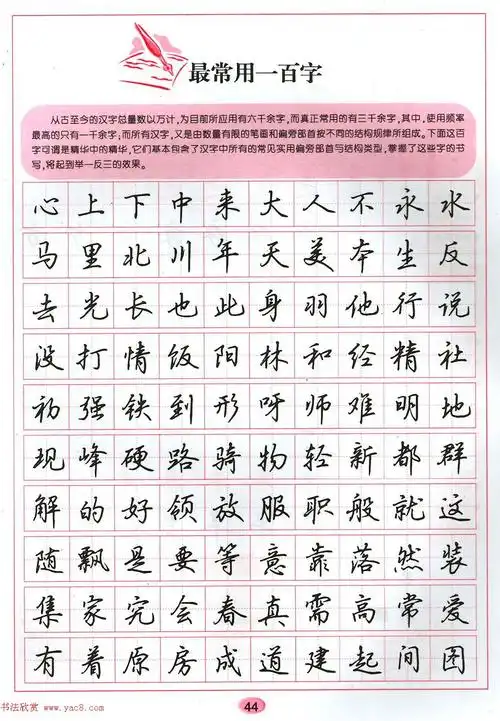 最常用一百字
从古至今的汉字总量数以万计,为目前所应用有六千余字,而真正常用的有三千余字,其中,使用频率
最高的只有一千余字;而所有汉字,又是由数量有限的笔画和偏旁部首按不同的结构规律所组成。下面这百
字可谓是精华中的精华,它们基本包含了汉字中所有的常见实用偏旁部首与结构类型,掌握了这些字的书
写,将起到举一反三的效果。
心上下中来大人不永水
马里北川年天美本生反
去光长也此身羽他行说
没打情饭阳林和经精社
初强铁到形呀师难明地
现峰硬路骑物轻新都群
解的好领放服职般就这
随飘是要等意靠落然装
集家究会春真需高常爱
有着原房成道建起间图
书法欣赏 www.yac8.com
44